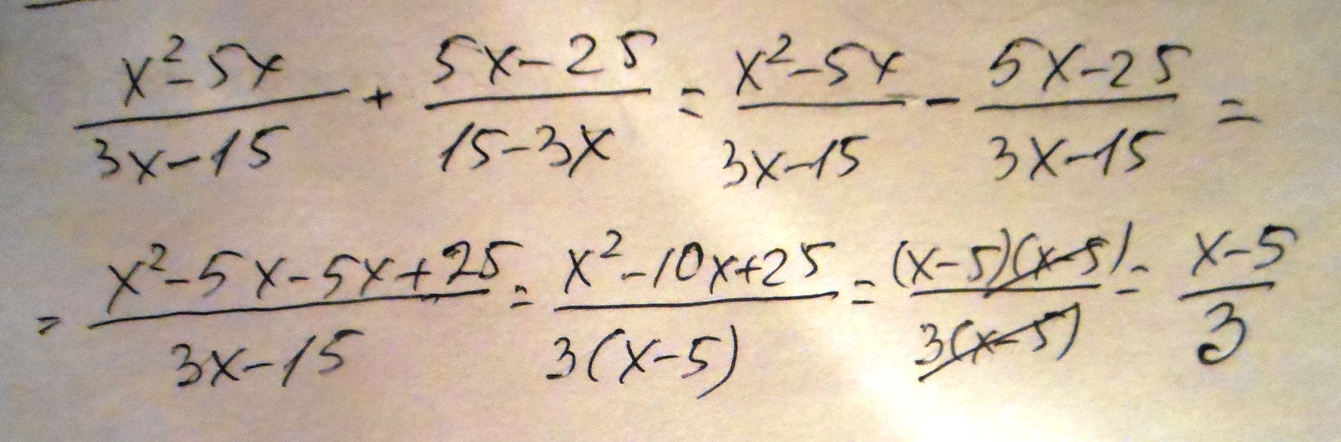 \frac{x^2-5x}{3x-15} + \frac{5x-25}{15-3x} = \frac{x^2-5x}{3x-15} - \frac{5x-25}{3x-15} =
= \frac{x^2-5x-5x+25}{3x-15} = \frac{x^2-10x+25}{3(x-5)} = \frac{(x-5)(x-5)}{3(x-5)} = \frac{x-5}{3}